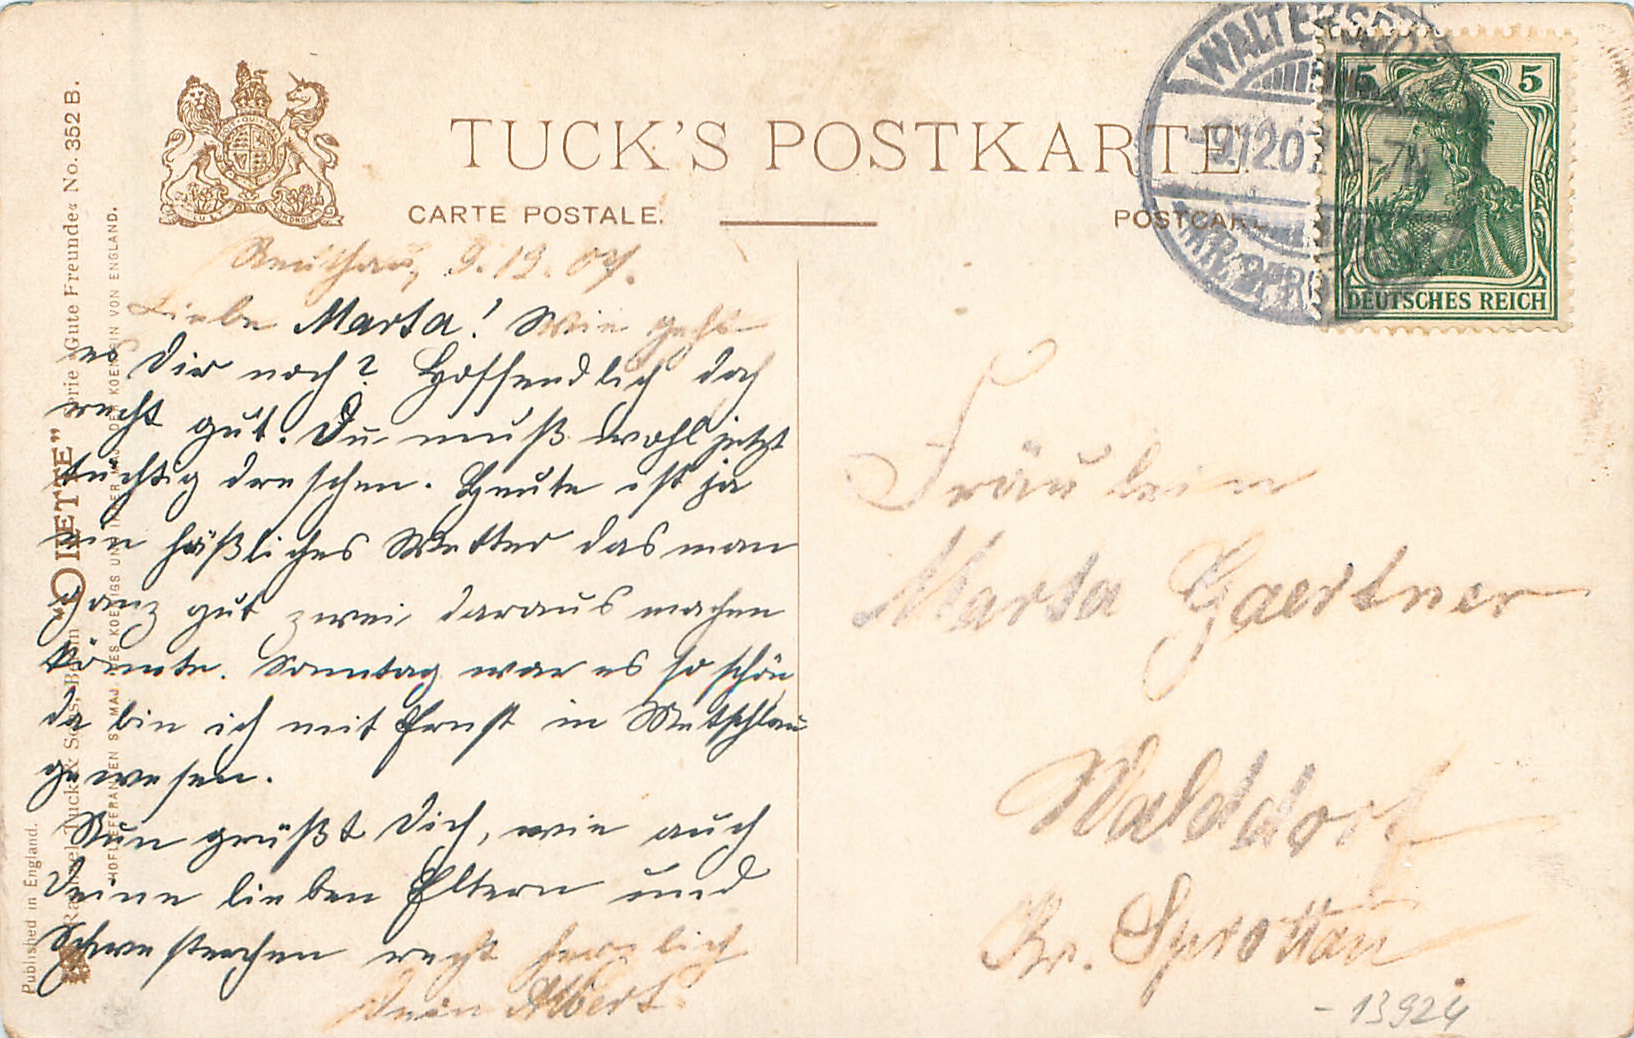 TUCK'S POSTKARTE
CARTE POSTALE.
POSTCARD
5 5
DEUTSCHES REICH
WALTERSD
9.12.07
7N
Reuthau, 9.12.07.
Liebe Marta! Wie geht
es Dir noch? Hoffendlich doch
recht gut. Du mußt wohl jetzt
tüchtig dreschen. Heute ist ja
ein häßliches Wetter das man
ganz gut zwei daraus machen
könnte. Sonntag war es so schön
da bin ich mit Ernst in Metschlau
gewesen.
Nun grüßt Dich, wie auch
Deine lieben Eltern und
Schwesterchen recht herzlich
Dein Albert.
Fräulein
Marta Gaertner
Walddorf
Kr. Sprottau
-13924
"OILETTE" Serie »Gute Freunde« No. 352 B.
Raphael Tuck & Sons, Berlin
HOFLIEFERANTEN SR. MAJ. DES KOENIGS UND IHRER MAJ. DER KOENIGIN VON ENGLAND.
Published in England.